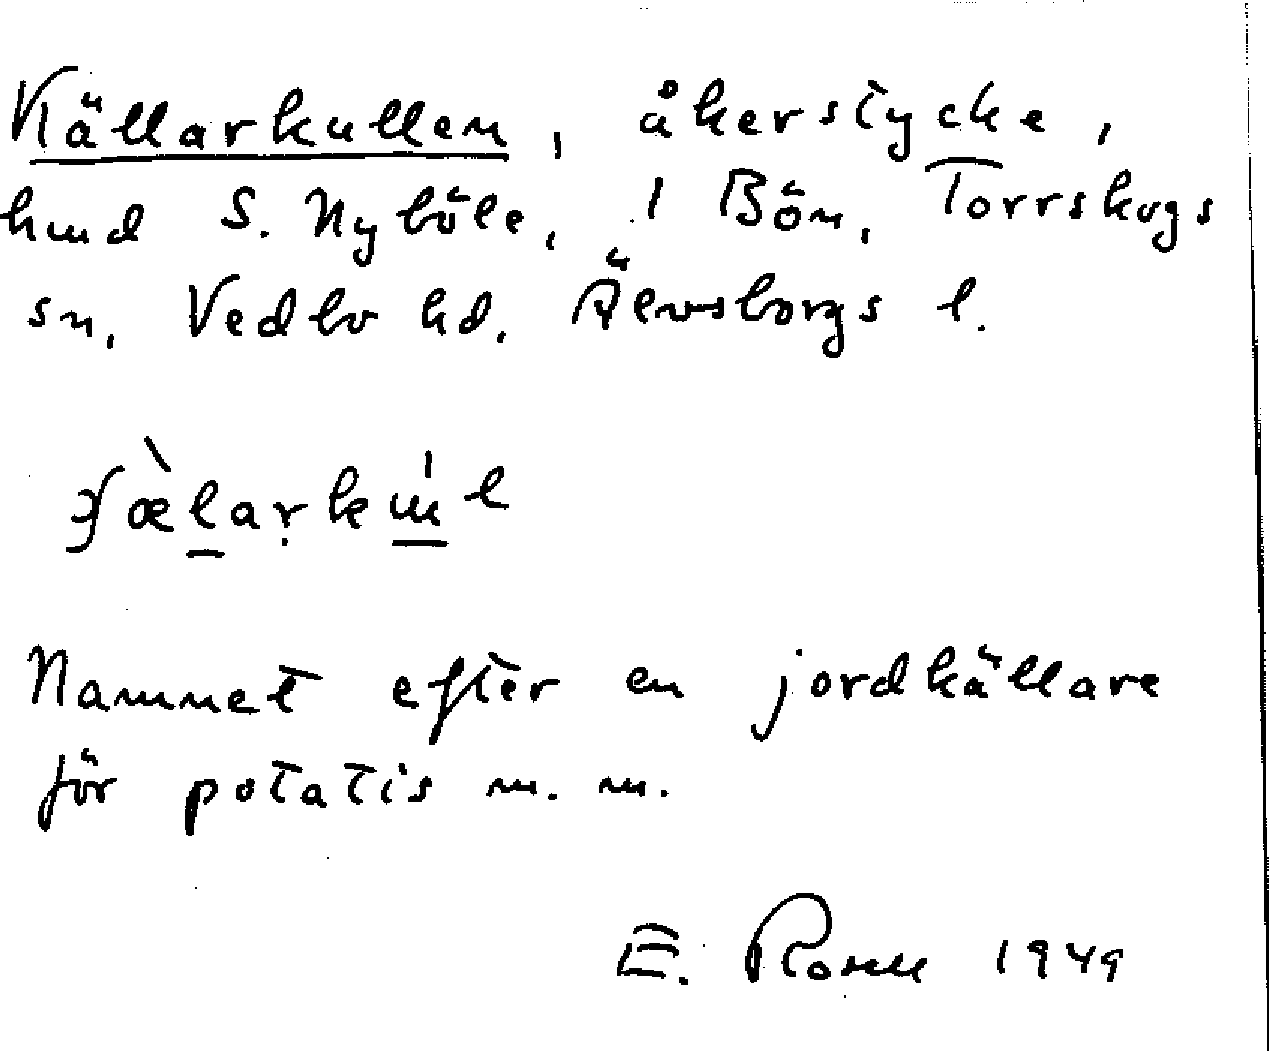 Källarkullen, åkerstycke,
hmd S. Nyböle, 1 Bön, Torrskogs
sn, Vedbo hd. Älvsborgs l.
Namnet efter en jordkällare
för potatis m. m.
E. 1949